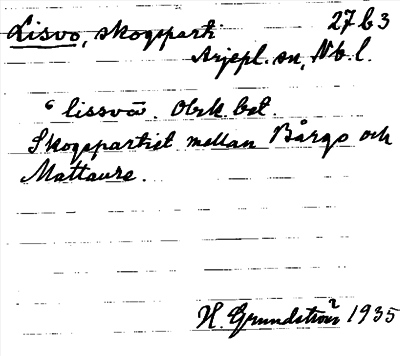 Lisvo, skogsparti 27 b 3
Arjepl. sn, Nb. l.
lissvō. Obek. bet.
Skogspartiet mellan Bårgo och
Mattaure.
H. Grundström 1935